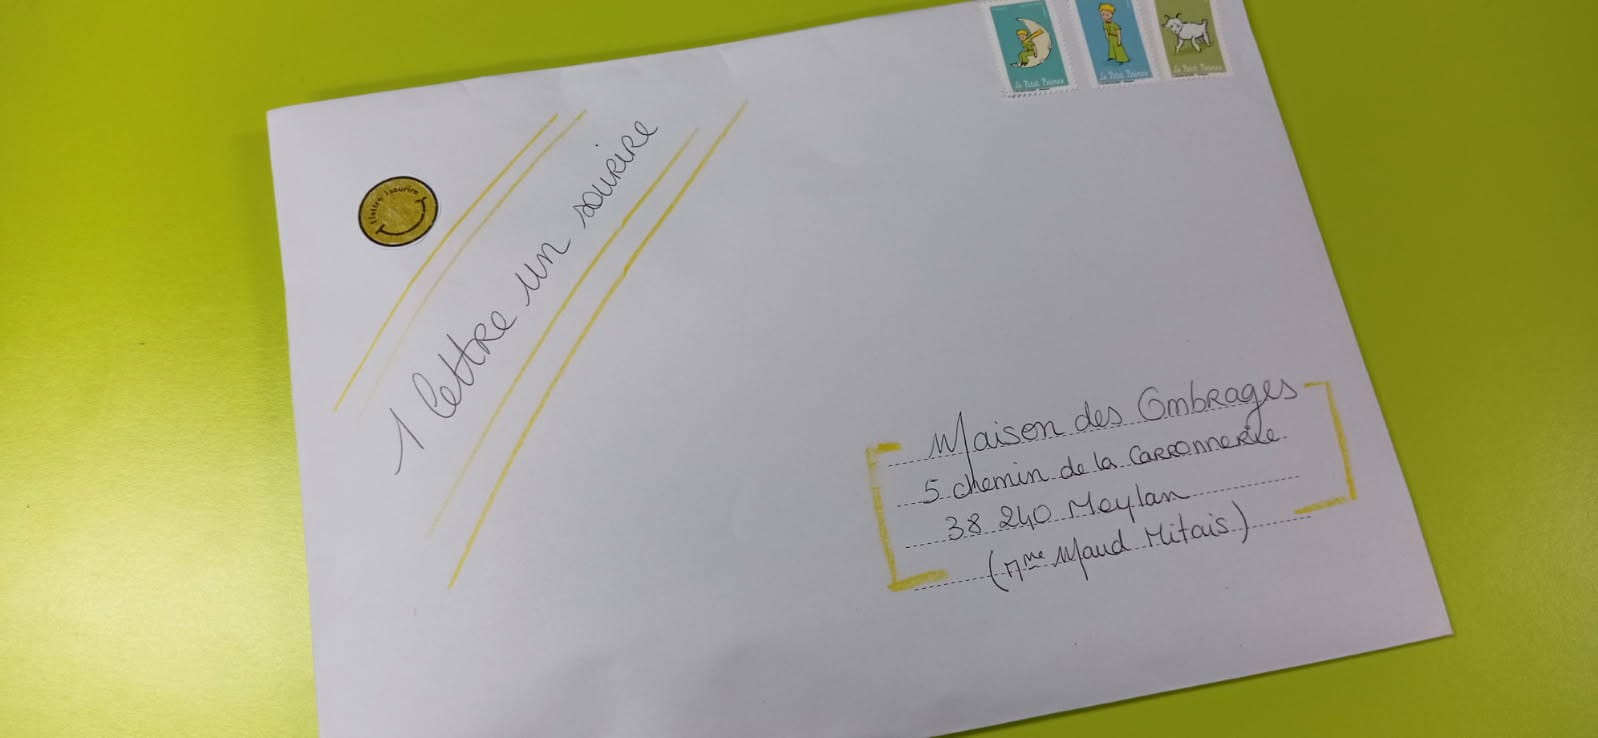 Le Petit Prince
Le Petit Prince
Le Petit Prince
1 lettre 1 sourire
1 lettre un sourire
Maison des Ombrages
5 chemin de la Carronnerie
38 240 Meylan
(Mme Maud Mitais)